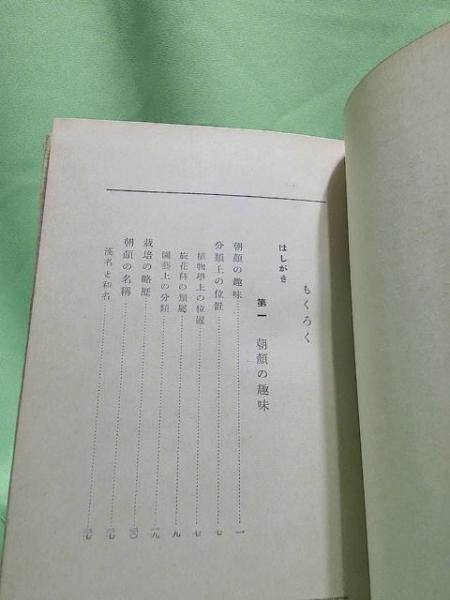 もくろく
はしがき
第一 朝顔の趣味
朝顔の趣味……一
分類上の位置……七
植物學上の位置……七
旋花科の類屬……九
園藝上の分類……一九
栽培の略歴……二〇
朝顔の名稱……
漢名と和名……